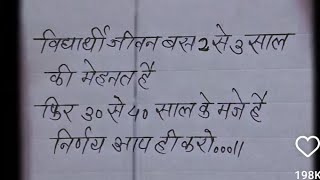 विद्यार्थी जीवन बस 2 से 3 साल
की मेहनत है
फिर 30 से 40 साल के मजे है
निर्णय आप ही करो...।।
198K